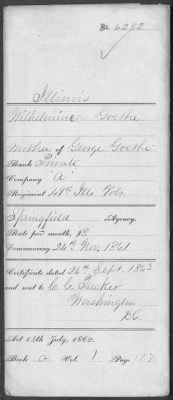 No. 6282
Illinois
Wilhelmine Goethe
mother of George Goethe
Rank Private
Company "A"
Regiment Ills Vols.
Springfield Agency.
Rate per month, $8
Commencing 24th Nov. 1861
Certificate dated 26th Sept. 1863
and sent to C. C. Tucker
Washington
D.C.
Act 14th July, 1862.
Book a Vol. 1 Page